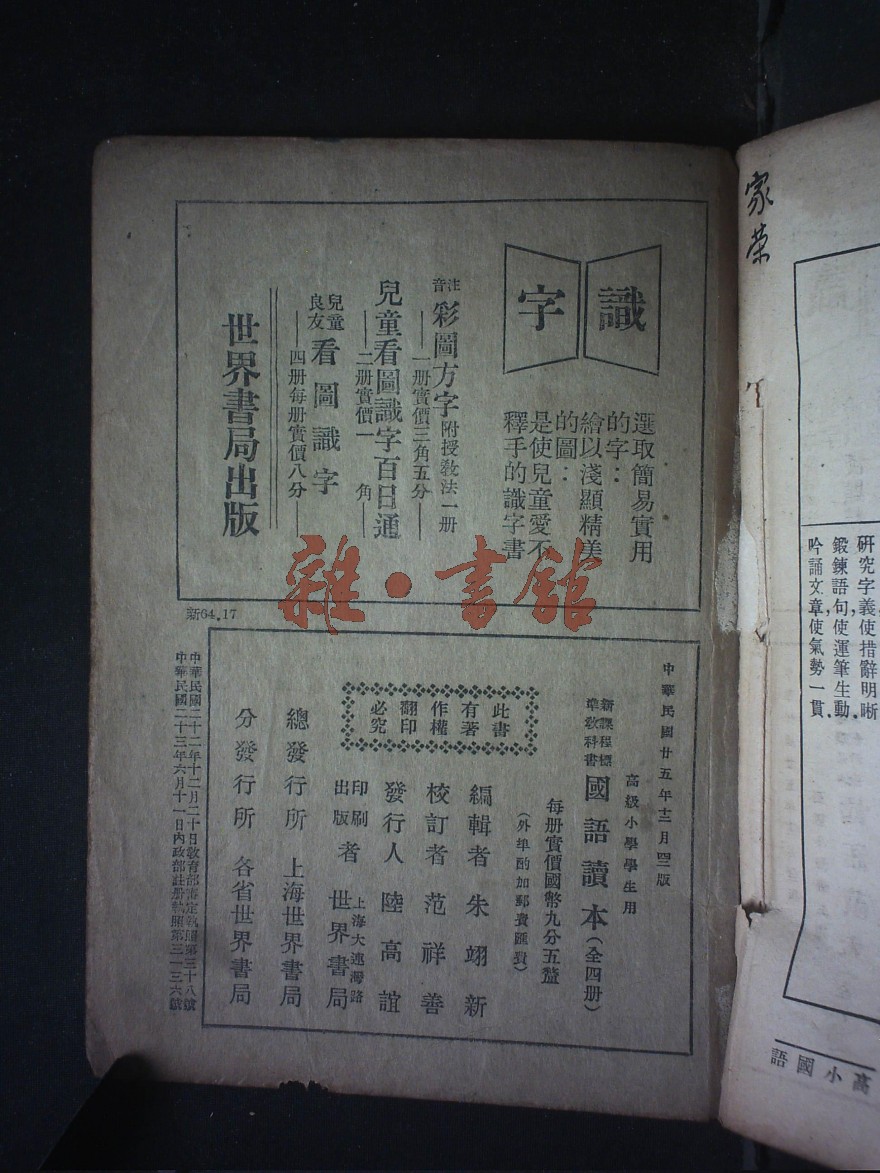 識字
選取簡易實用
的字：
繪以淺顯精美
的圖：
是使兒童愛不
釋手的識字書
注音 彩圖方字 附授教法一册
——一册實價三角五分——
兒童看圖識字百日通
——二册實價一角——
兒童良友 看圖識字
——四册每册實價八分——
世界書局出版
雜·書館
新64.17
中華民國廿五年十二月四三版
高級小學學生用
新課程標準教科書 國語讀本（全四册）
每册實價國幣九分五釐
（外埠酌加郵費匯費）
此書
有著
作權
翻印
必究
編輯者 朱翊新
校訂者 范祥善
發行人 陸高誼
印刷出版者 上海大連灣路 世界書局
總發行所 上海世界書局
分發行所 各省世界書局
中華民國二十二年十二月二十日教育部審定執照第三十八號
中華民國二十三年六月十一日內政部註册執照第三一三六號
家荣
研究字義，使措辭明晰．
鍛鍊語句，使運筆生動．
吟誦文章，使氣勢一貫．
高小國語